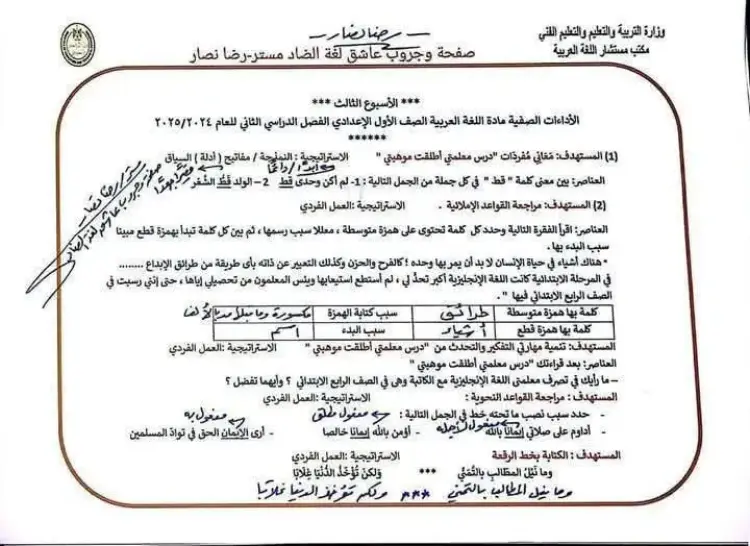 وزارة التربية والتعليم والتعليم الفني
مكتب مستشار اللغة العربية
رضا نصار
صفحة وجروب عاشق لغة الضاد مستر-رضا نصار
*** الأسبوع الثالث ***
الأداءات الصفية مادة اللغة العربية الصف الأول الإعدادي الفصل الدراسي الثاني للعام ٢٠٢٥/٢٠٢٤
******
(1) المستهدف: مَعَاني مُفرَدَات "درس معلمتي أطلقت موهبتي " الاستراتيجية : النمذجة / مفاتيح ( أدلة ) السياق
أبدًا / دائمًا
قصيرًا جعدًا
العناصر: بين معنى كلمة " قط " في كل جملة من الجمل التالية : 1- لم أكن وحدى قط 2 – الولد قَطُّ الشعْر
(2) المستهدف: مراجعة القواعد الإملائية . الاستراتيجية: العمل الفردي
العناصر: اقرأ الفقرة التالية وحدد كل كلمة تحتوى على همزة متوسطة ، معللا سبب رسمها ، ثم بين كل كلمة تبدأ بهمزة قطع مبينا
سبب البدء بها .
" هناك أشياء في حياة الإنسان لا بد أن يمر بها وحده ! كالفرح والحزن وكذلك التعبير عن ذاته بأى طريقة من طرائق الإبداع ........
في المرحلة الابتدائية كانت اللغة الإنجليزية أكبر تحدٍّ لي ، لم أستطع استيعابها ويئس المعلمون من تحصيلي إياها ، حتى إنني رسبت في
الصف الرابع الابتدائي فيها " .
كلمة بها همزة متوسطة طرائق سبب كتابة الهمزة مكسورة وما قبلها مد بالألف
كلمة بها همزة قطع أشياء سبب البدء اسم
المستهدف: تنمية مهارتي التفكير والتحدث من "درس معلمتي أطلقت موهبتي " الاستراتيجية :العمل الفردي
العناصر: بعد قراءتك "درس معلمتي أطلقت موهبتي "
– ما رأيك في تصرف معلمتى اللغة الإنجليزية مع الكاتبة وهى في الصف الرابع الابتدائي ؟ وأيهما تفضل ؟
المستهدف : مراجعة القواعد النحوية : الاستراتيجية :العمل الفردي
- حدد سبب نصب ما تحته خط في الجمل التالية : مفعول لأجله مفعول مطلق مفعول به
- أداوم على صلاتي إيمانا بالله - أؤمن بالله إيمانا خالصا - أرى الإيمان الحق في توادّ المسلمين
المستهدف: الكتابة بخط الرقعة الاستراتيجية :العمل الفردي
وما نَيْلُ المطَالبِ بِالتَّمنِّي *** وَلكنْ تُؤْخَذُ الدُّنْيَا غِلابَا
وما نيل المطالب بالتمني *** ولكن تؤخذ الدنيا غلابا
مستر / رضا نصار